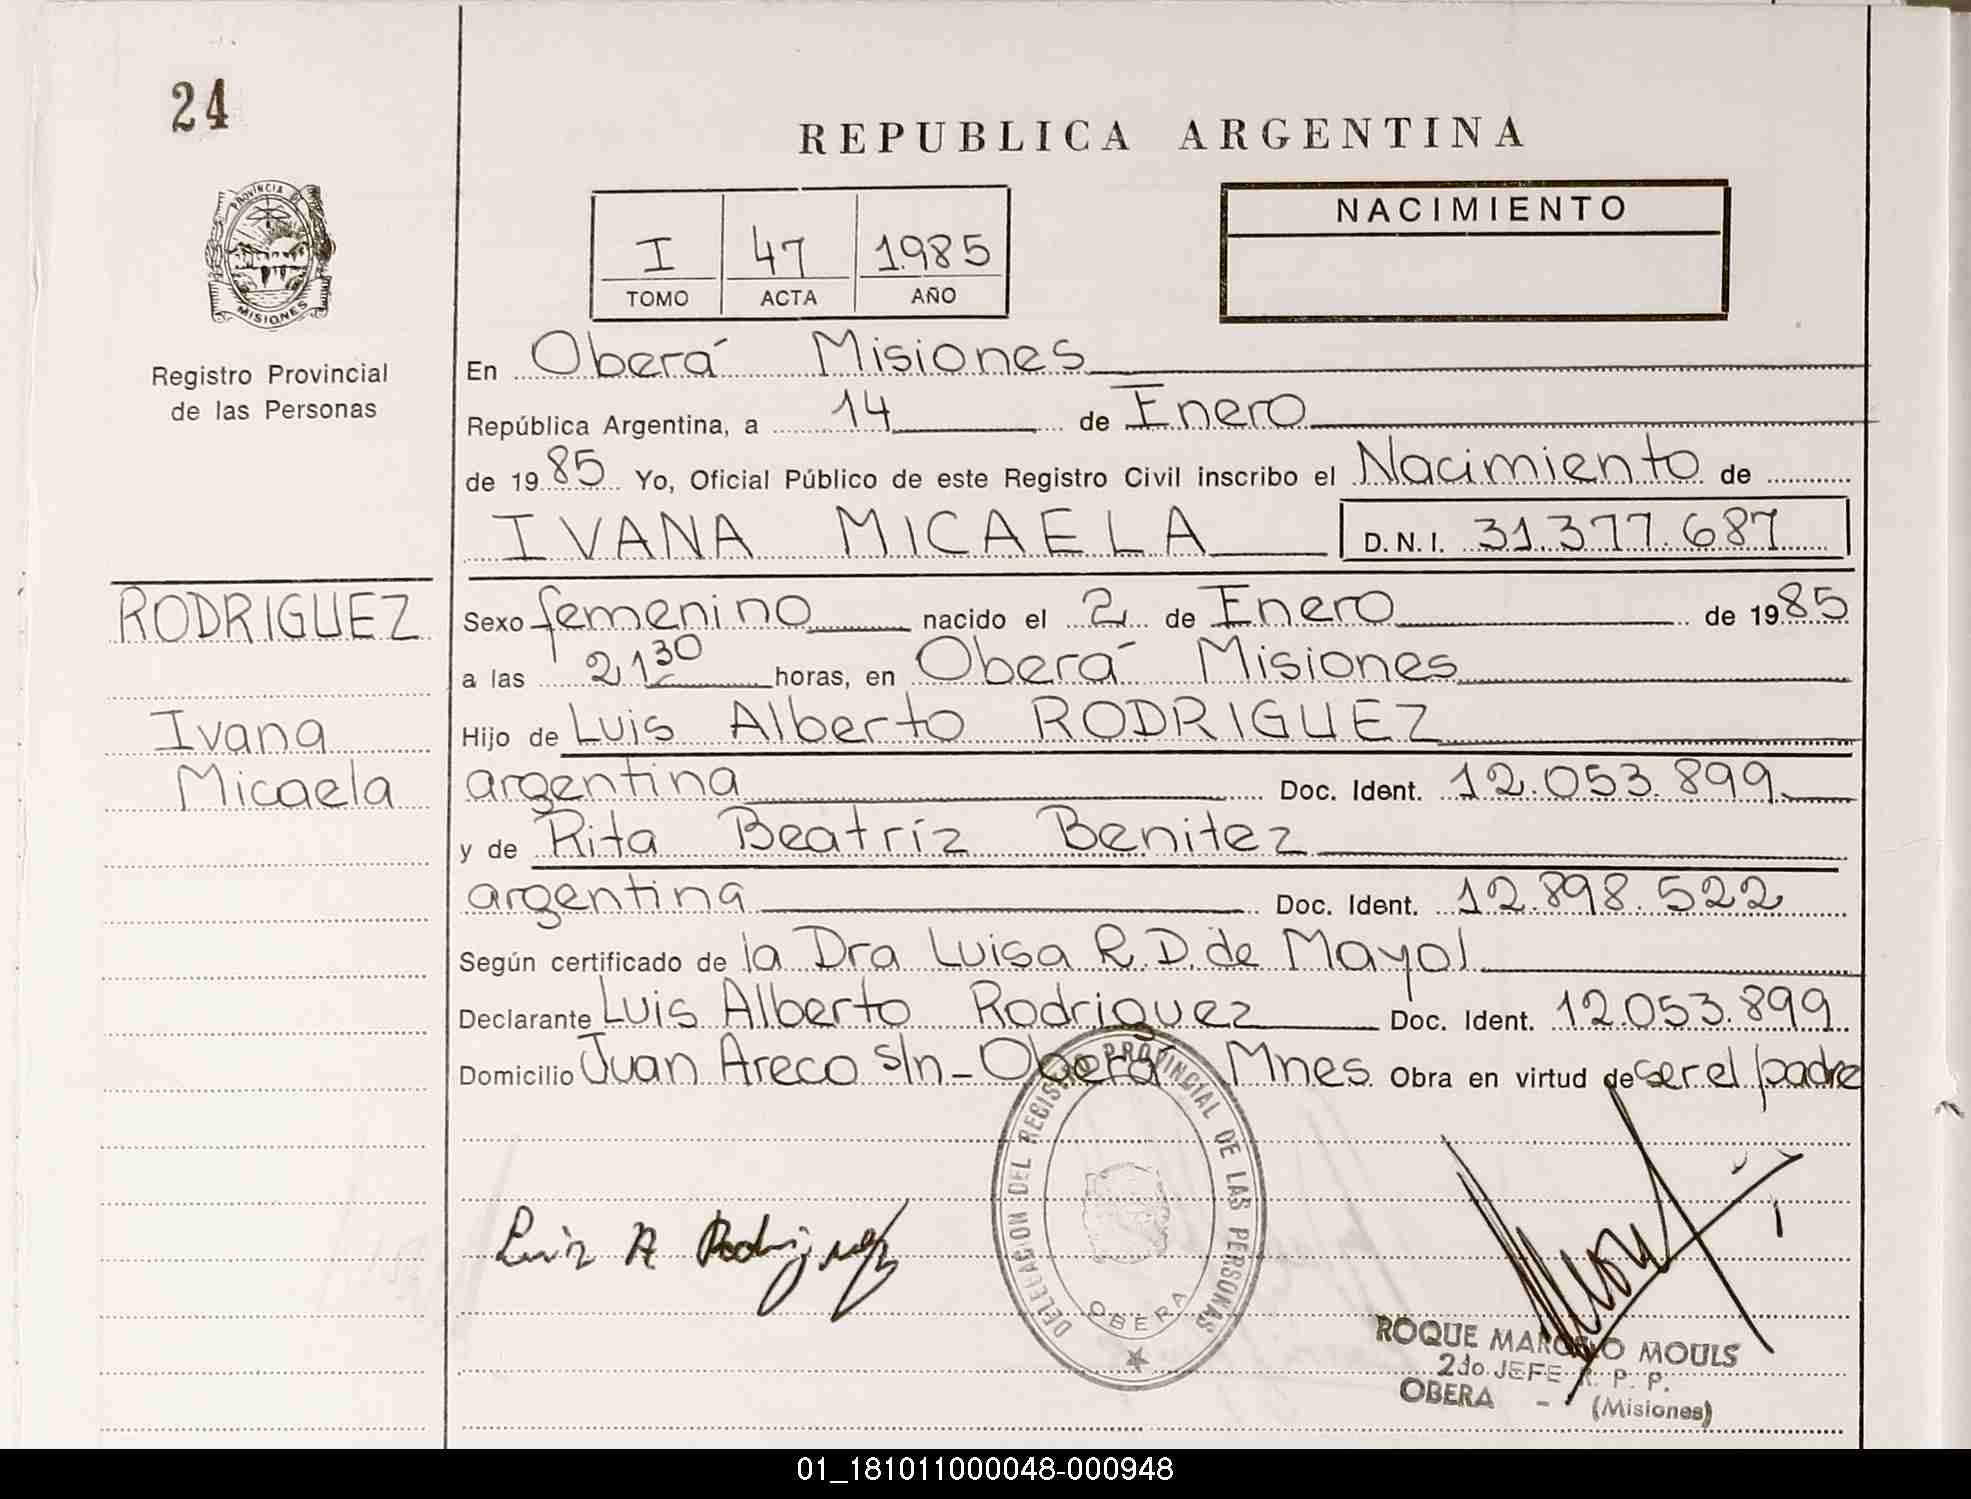 24
REPUBLICA ARGENTINA
PROVINCIA DE
MISIONES
Registro Provincial
de las Personas
I 47 1985
TOMO ACTA AÑO
NACIMIENTO
En Oberá Misiones
República Argentina, a 14 de Enero
de 1985 Yo, Oficial Público de este Registro Civil inscribo el Nacimiento de
IVANA MICAELA D.N.I. 31.377.687
RODRIGUEZ
Ivana
Micaela
Sexo femenino nacido el 2 de Enero de 1985
a las 21 30 horas, en Oberá Misiones
Hijo de Luis Alberto RODRIGUEZ
argentina Doc. Ident. 12.053.899
y de Rita Beatríz Benitez
argentina Doc. Ident. 12.898.522
Según certificado de la Dra Luisa R.D. de Mayol
Declarante Luis Alberto Rodriguez Doc. Ident. 12.053.899
Domicilio Juan Areco s/n - Oberá Mnes. Obra en virtud de ser el padre
DELEGACION DEL REGISTRO PROVINCIAL DE LAS PERSONAS
OBERA
Luis A Rodriguez
ROQUE MARCELO MOULS
2do JEFE R. P. P.
OBERA - (Misiones)
01_181011000048-000948